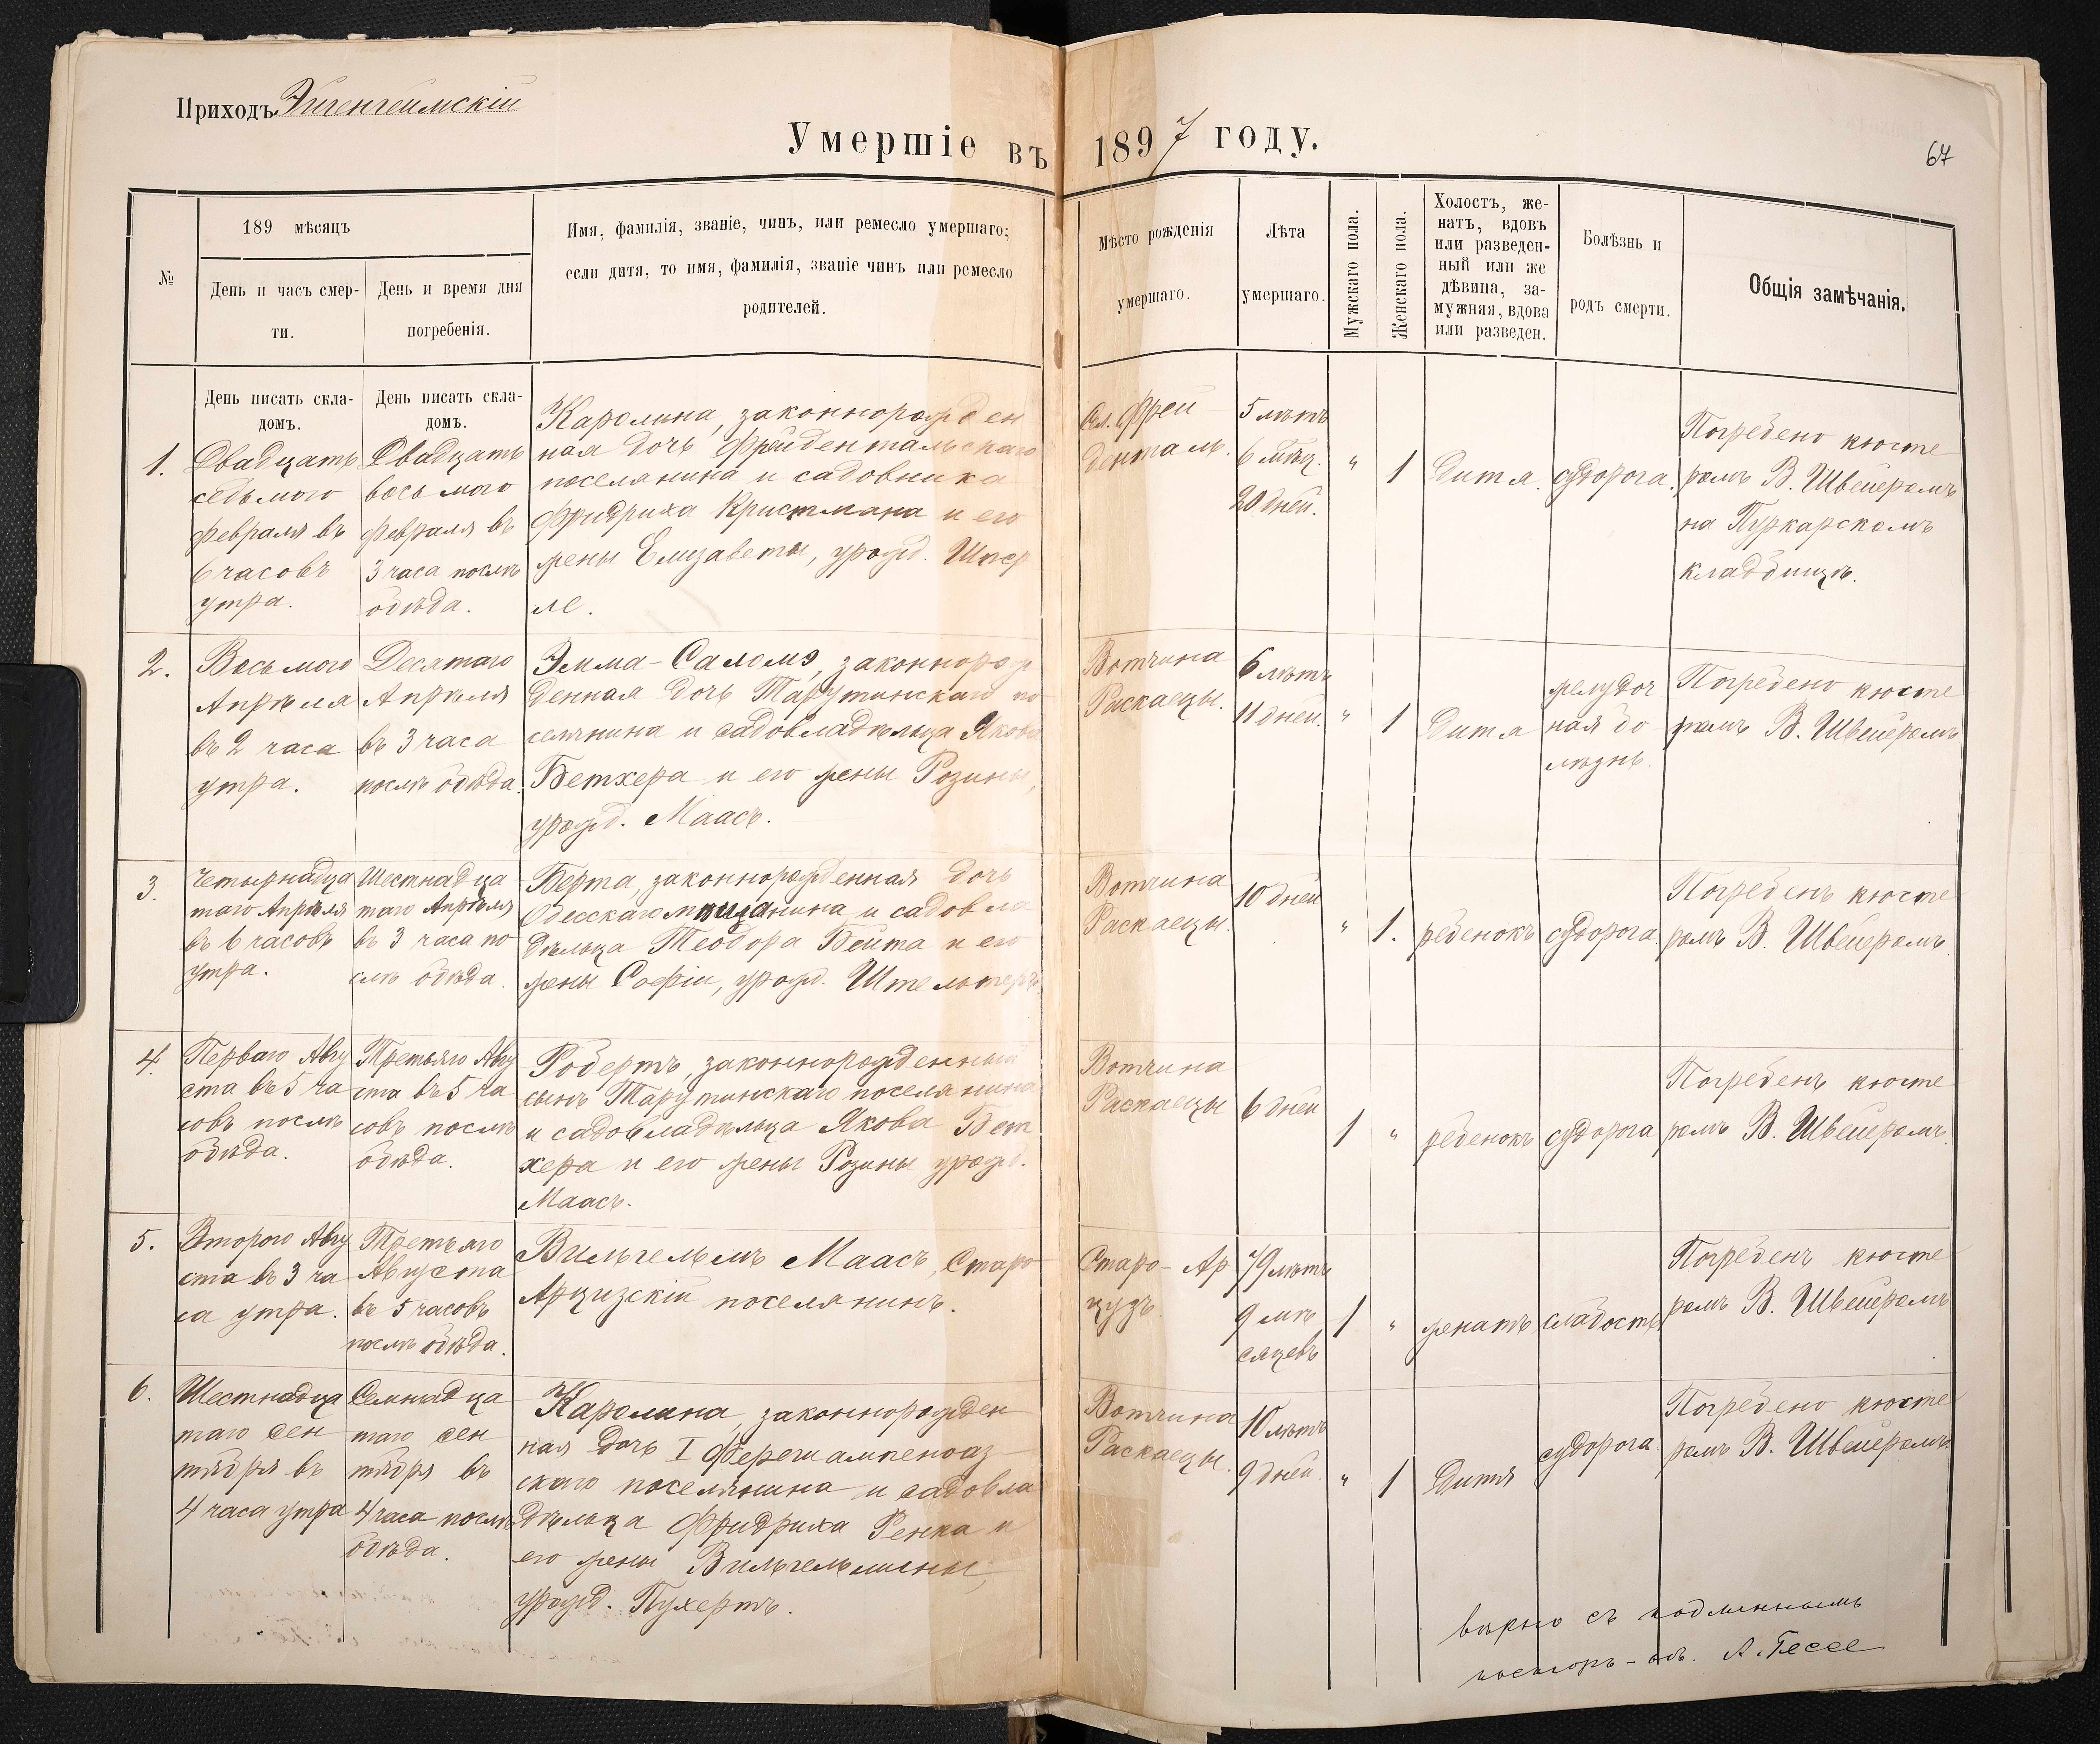 Приходъ Эйгенгеймскій
Умершіе въ 1897 году.
67
№
189 мѣсяцъ
День и часъ смер-
ти.
День и время дня
погребенія.
Имя, фамилія, званіе, чинъ, или ремесло умершаго;
если дитя, то имя, фамилія, званіе чинъ или ремесло
родителей.
Мѣсто рожденія
умершаго.
Лѣта
умершаго.
Мужскаго пола.
Женскаго пола.
Холостъ, же-
натъ, вдовъ
или разведен-
ный или же
дѣвица, за-
мужняя, вдова
или разведен.
Болѣзнь и
родъ смерти.
Общія замѣчанія.
День писать скла-
домъ.
День писать скла-
домъ.
1.
Двадцать
седьмого
Февраля въ
6 часовъ
утра.
Двадцать
восьмого
Февраля въ
3 часа послѣ
обѣда.
Каролина, законнорожден
ная дочь Фрейдентальскаго
поселянина и садовника
Фридриха Кристмана и его
жены Елизаветы, урожд. Шпер
ле.
Кол. Фрей
денталь.
5 лѣтъ
6 мѣц.
20 дней.
"
1
Дитя.
судорога.
Погребено кюсте
ромъ В. Швейеромъ
на Пуркарскомъ
кладбищѣ.
2.
Восьмого
Апрѣля
въ 2 часа
утра.
Десятаго
Апрѣля
въ 3 часа
послѣ обѣда.
Эмма-Саломэ, законнорож
денная дочь Тарутинскаго по
селянина и садовладѣльца Якова
Бетхера и его жены Розины,
урожд. Маасъ.
Вотчина
Раскаецы.
6 лѣтъ
11 дней.
"
1
Дитя
желудоч
ная бо
лѣзнь.
Погребено кюсте
ромъ В. Швейеромъ
3.
Четырнадца
таго Апрѣля
въ 6 часовъ
утра.
Шестнадца
таго Апрѣля
въ 3 часа по
слѣ обѣда.
Берта, законнорожденная дочь
Одесскаго мѣщанина и садовла
дѣльца Теодора Бейта и его
жены Софіи, урожд. Штельтеръ.
Вотчина
Раскаецы.
10 дней
"
1.
ребенокъ
судорога.
Погребенъ кюсте
ромъ В. Швейеромъ.
4.
Перваго Авгу
ста въ 5 ча
совъ послѣ
обѣда.
Третьяго Авгу
ста въ 5 ча
совъ послѣ
обѣда.
Робертъ, законнорожденный
сынъ Тарутинскаго поселянина
и садовладѣльца Якова Бет
хера и его жены Розины урожд.
Маасъ.
Вотчина
Раскаецы
6 дней
1
"
ребенокъ
судорога
Погребенъ кюсте
ромъ В. Швейеромъ.
5.
Второго Авгу
ста въ 3 ча
са утра.
Третьяго
Августа
въ 5 часовъ
послѣ обѣда.
Вильгельмъ Маасъ, Старо
Арцизскій поселянинъ.
Старо-Ар
цузъ.
79 лѣтъ
9 мѣ
сяцевъ
1
"
женатъ
слабость
Погребенъ кюсте
ромъ В. Швейеромъ
6.
Шестнадца
таго Сен
тября въ
4 часа утра
Семнадца
таго Сен
тября въ
4 часа послѣ
обѣда.
Каролина, законнорожден
ная дочь I Ферешампеноаз
скаго поселянина и садовла
дѣльца Фридриха Ренка и
его жены Вильгельмины,
урожд. Пухертъ.
Вотчина
Раскаецы.
10 лѣтъ
9 дней.
"
1
Дитя
судорога.
Погребено кюсте
ромъ В. Швейеромъ.
вѣрно съ подлиннымъ
пасторъ-ад. А. Гессе